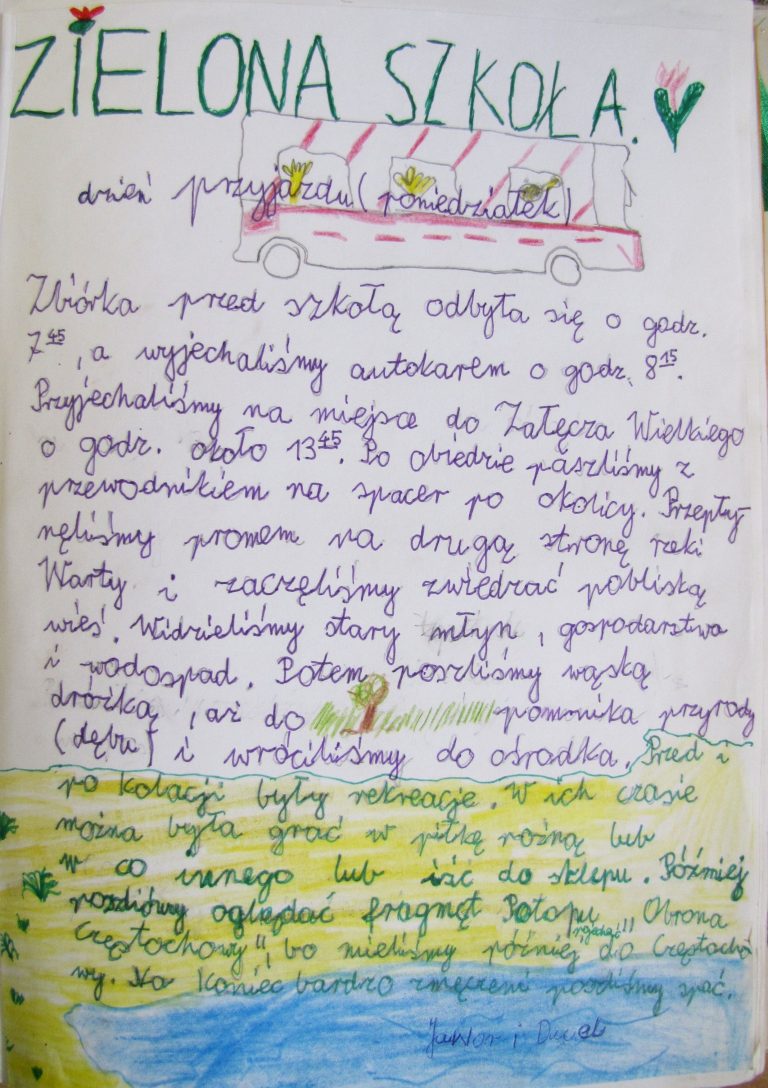 ZIELONA SZKOŁA.
dzień przyjazdu (poniedziałek)
Zbiórka przed szkołą odbyła się o godz.
7 45, a wyjechaliśmy autokarem o godz. 8 15.
Przyjechaliśmy na miejsce do Załęcza Wielkiego
o godz. około 13 45. Po obiedzie paszliśmy z
przewodnikiem na spacer po okolicy. Przepły-
nęliśmy promem na drugą stronę rzeki
Warty i zaczęliśmy zwiedzać pobliską
wieś. Widzieliśmy stary młyn, gospodarstwa
i wodospad. Potem poszliśmy wąską
dróżką, aż do pomnika przyrody
(dębu) i wróciliśmy do ośrodka. Przed i
po kolacji były rekreacje. W ich czasie
można było grać w piłkę nożną lub
w co innego lub iść do sklepu. Później
oglądać fragmęt Potopu "Obrona
Częstochowy", bo mieliśmy później pojechać do Częstocho
wy. Na koniec bardzo zmęczeni poszliśmy spać.
i